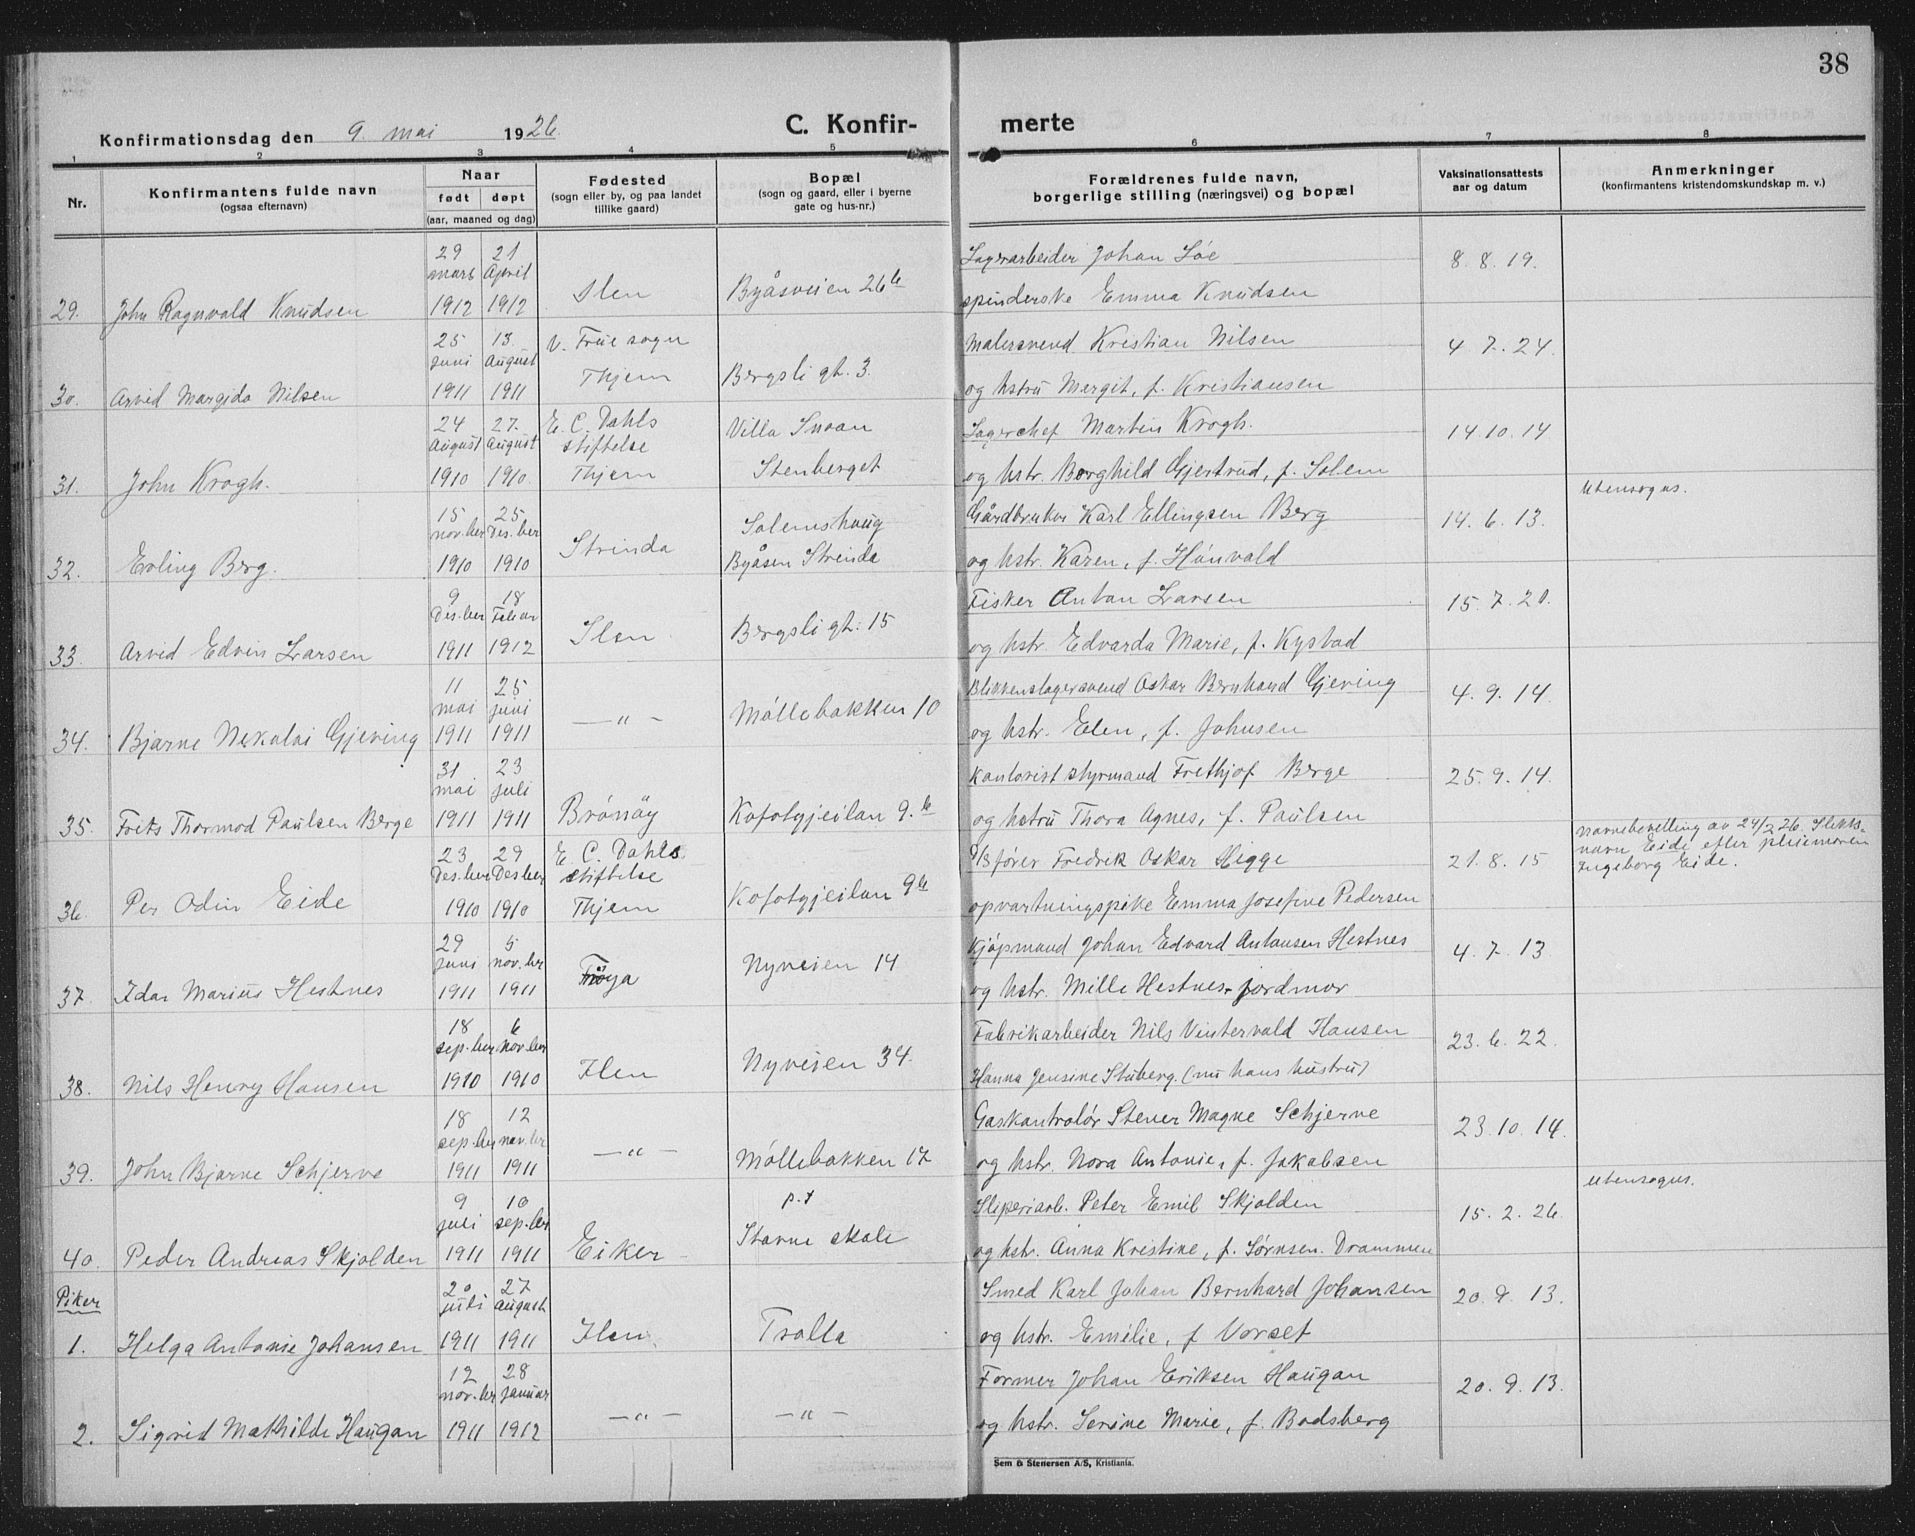 38
Konfirmationsdag den 9. mai 1926.
C. Konfirmerte
1 2 3 4 5 6 7 8
Nr.
Konfirmantens fulde navn
(ogsaa efternavn)
Naar
født døpt
(aar, maaned og dag)
Fødested
(sogn eller by, og paa landet
tillike gaard)
Bopæl
(sogn og gaard, eller i byerne
gate og hus-nr.)
Forældrenes fulde navn,
borgerlige stilling (næringsvei) og bopæl
Vaksinationsattests
aar og datum
Anmerkninger
(konfirmantens kristendomskundskap m. v.)
29. John Ragnvald Knudsen
29 mars 1912
21 April 1912
Ilen
Byåsveien 26b
Lagerarbeider Johan Løe
spinderske Emma Knudsen
8. 8. 19.
30. Arvid Margido Nilsen
25 juni 1911
13 august 1911
V. Frue sogn
Thjem
Bergsli gt. 3.
Malersvend Kristian Nilsen
og hstru Margit, f. Kristiansen
4 7. 24.
31. John Krogh.
24 august 1910
27. august 1910
E. C. Dahls
stiftelse
Thjem
Villa Snoan
Stenberget
Lagerchef Martin Krogh.
og hstr. Borghild Gjertrud, f. Solem
14. 10. 14
32. Erling Berg.
15 nov.ber 1910
25 Des.ber 1910
Strinda
Solemshaug
Byåsen Strinda
Gårdbruker Karl Ellingsen Berg
og hstr. Karen, f. Hånvald
14. 6. 13.
Utensogns.
33. Arvid Edvin Larsen
9 Des.ber 1911
18 Febr 1912
Ilen
Bergsli gt. 15
Fisker Anton Larsen
og hstr. Edvarda Marie, f. Kysbad
15. 7. 20.
34. Bjarne Nikolai Gjeving
11 mai 1911
25 juni 1911
— " —
Møllebakken 10
Blikkenslagersvend Oskar Bernhard Gjeving
og hstr. Elen, f. Johnsen
4. 9. 14.
35. Frits Thormod Paulsen Berge
31 mai 1911
23 juli 1911
Brønøy
Kofotgjeilan 9.b
Kontorist styrmand Frethjof Berge
og hstru Thora Agnes, f. Paulsen
25. 9. 14.
36. Per Odin Eide
23 Des.ber 1910
29 Desber 1910
E. C. Dahls
stiftelse
Thjem
Kofotgjeilan 9b
D/Sfører Fredrik Oskar Higge
opvartningspike Emma Josefine Pedersen
21. 8. 15
Navnebevilling av 24/2 26. Slekts-
navn Eide efter pleiemoren
Ingeborg Eide.
37. Idar Marius Hestnes
29 juni 1911
5 nov.ber 1911
Frøya
Nyveien 14
Kjøpmand Johan Edvard Antonsen Hestnes
og hstr. Mille Hestnes, jordmor
4. 7. 13
38. Nils Henry Hansen
18 sep.ber 1910
6 nov.ber 1910
Ilen
Nyveien 34.
Fabrikarbeider Nils Vintervald Hansen
Hanna Jensine Stuberg. (nu hans hustru)
23. 6. 22.
39. John Bjarne Schjerve
18 sep.ber 1911
12 nov.ber 1911
— " —
Møllebakken 17
Gaskontrolør Stener Magne Schjerve
og hstr. Nora Antonie, f. Jakobsen
23. 10. 14.
40. Peder Andreas Skjolden
9 juli 1911
10 sep.ber 1911
Eiker
p.t
Stavne skole
Sliperiarb. Peter Emil Skjolden
og hstr. Anna Kristine, f. Sørnsen. Drammen
15. 2. 26.
utensogns.
Piker
1. Helga Antonie Johansen
20 juli 1911
27 august 1911
Ilen.
Trolla
Smed Karl Johan Bernhard Johansen
og hstr. Emelie, f Vorset
20. 9. 13.
2. Sigrid Mathilde Haugan
12 nov.ber 1911
28 januar 1912
— " —
— " —
Former Johan Eriksen Haugan
og hstr. Serine Marie, f. Bodsberg
20. 9. 13.
Sem & Stenersen A/S, Kristiania.